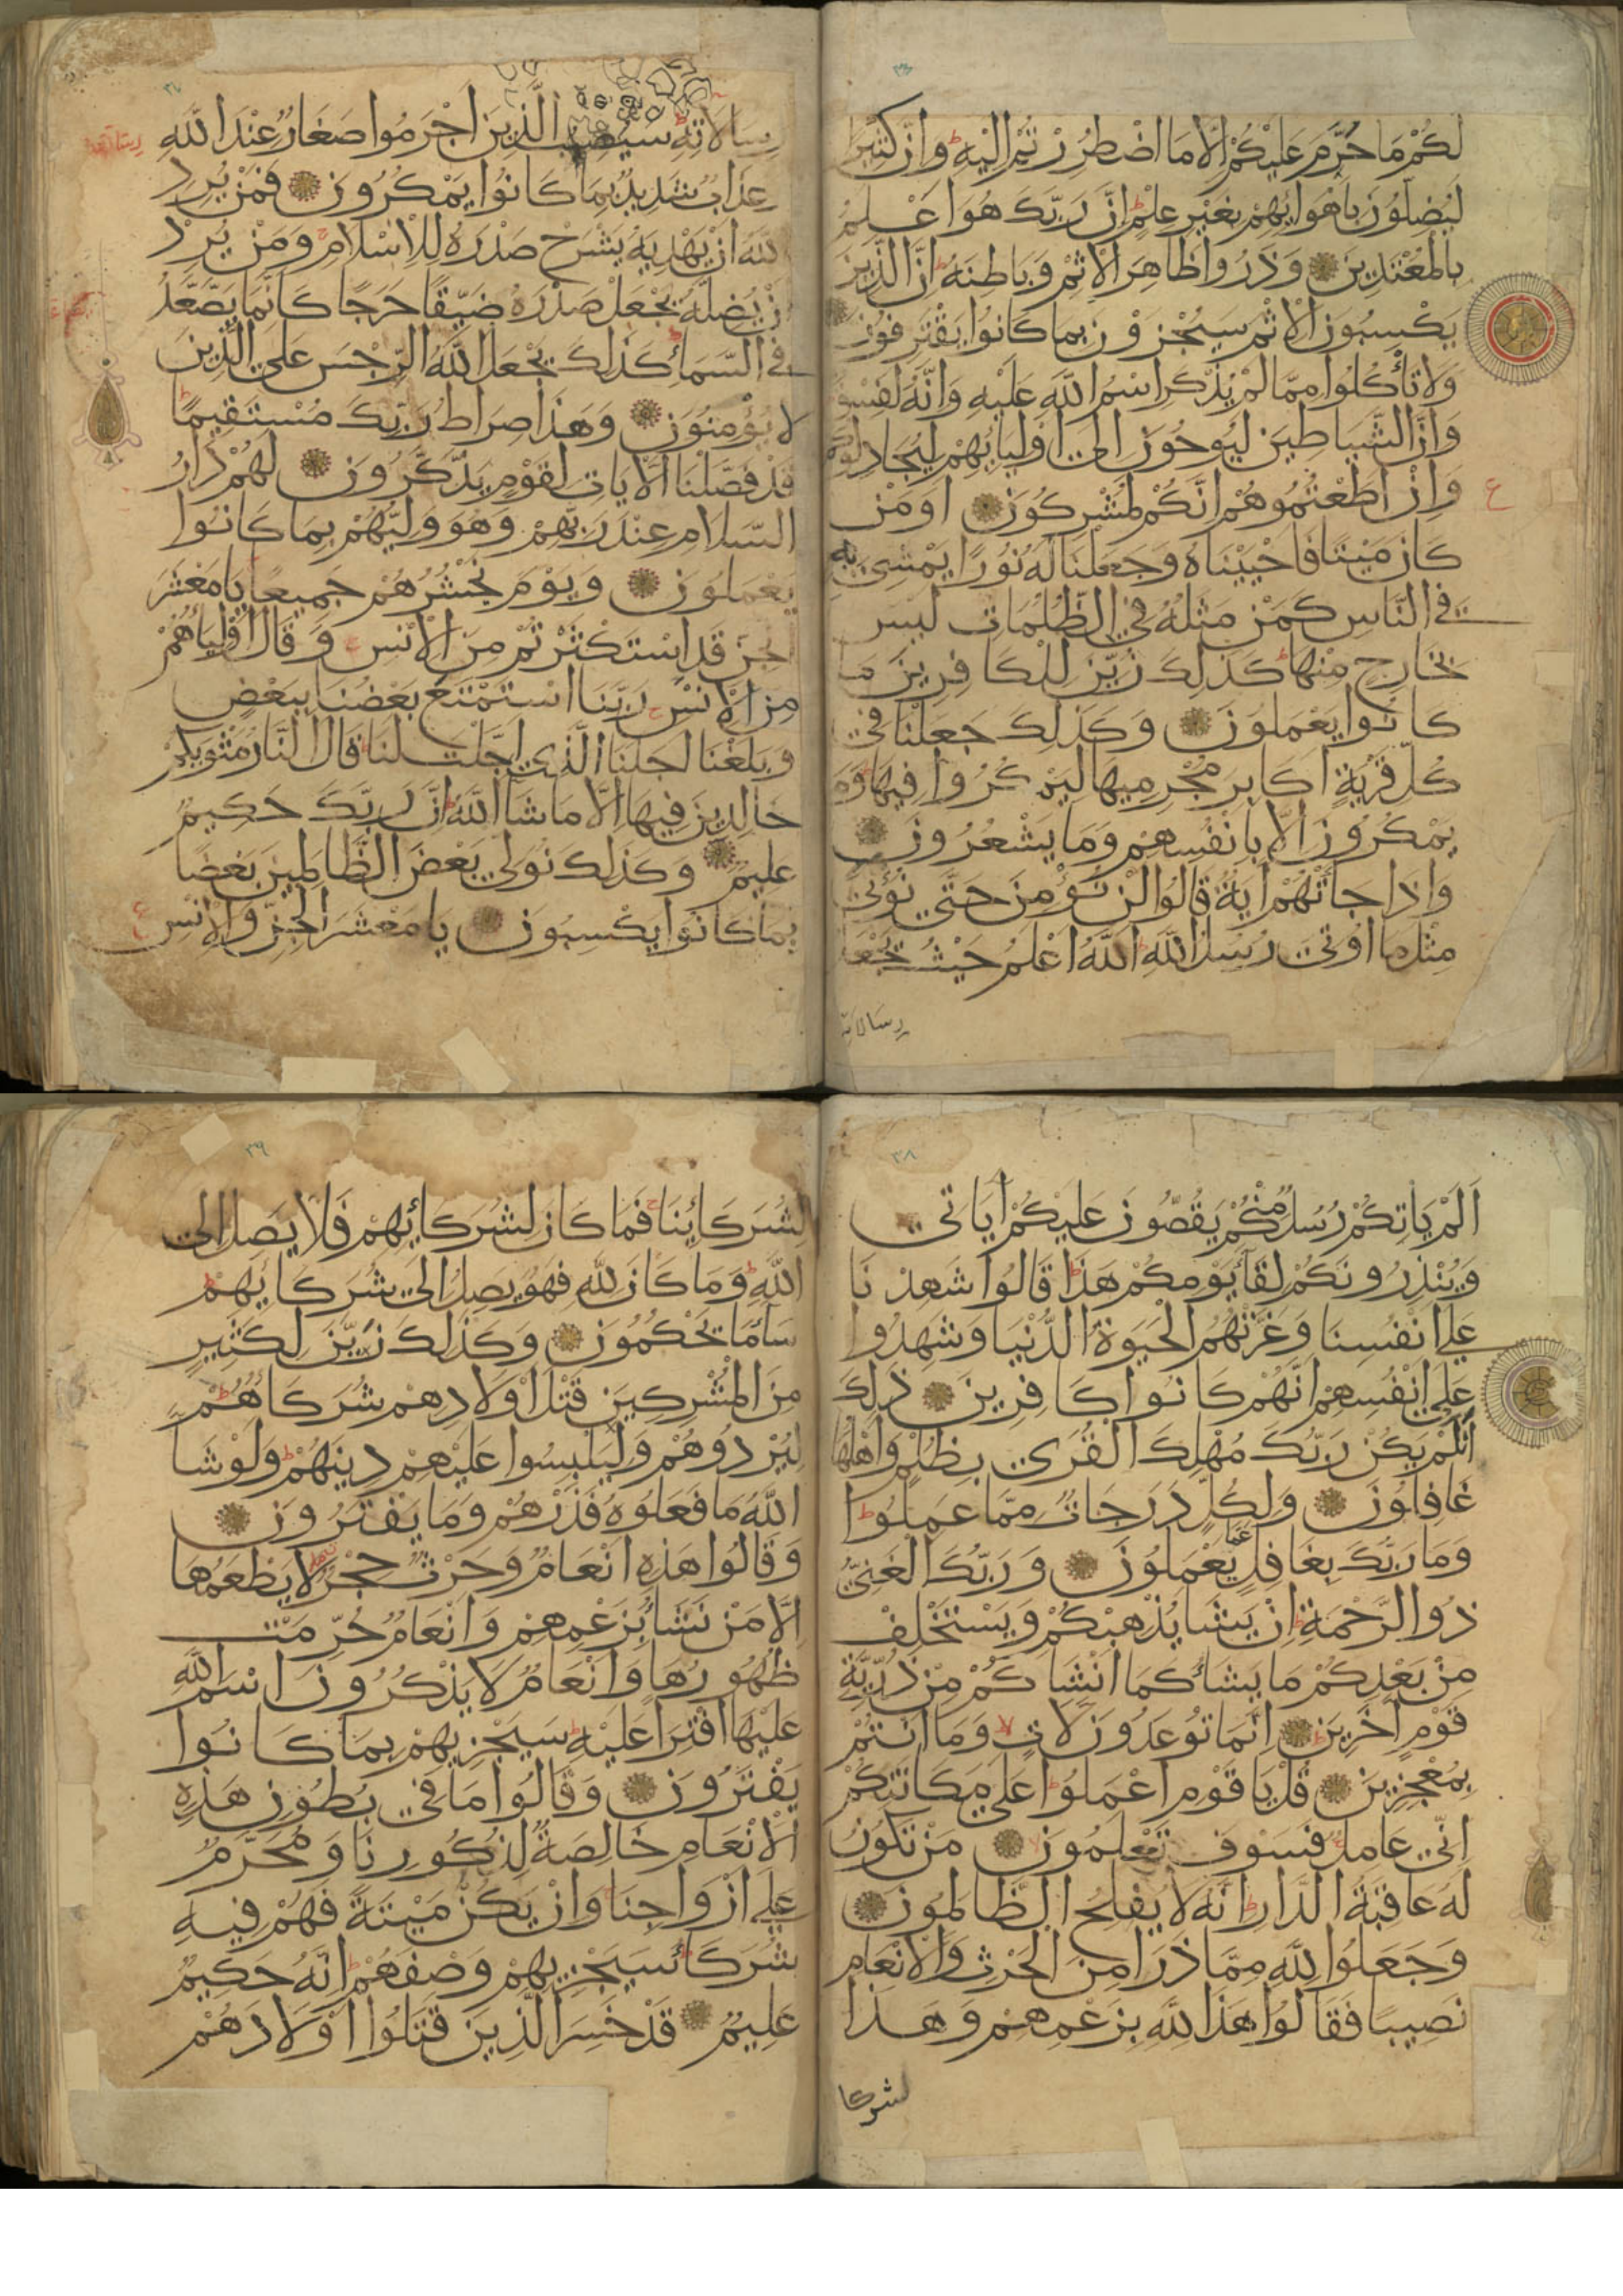 ٣٦
لَكُمْ مَا حُرِّمَ عَلَيْكُمْ اِلَّا مَا اضْطُرِرْتُمْ اِلَيْهِ ط وَاِنَّ كَثِيرًا
لَيُضِلُّونَ بِاَهْوَائِهِمْ بِغَيْرِ عِلْمٍ ط اِنَّ رَبَّكَ هُوَ اَعْلَمُ
بِالْمُعْتَدِينَ وَذَرُوا ظَاهِرَ الْاِثْمِ وَبَاطِنَهُ ط اِنَّ الَّذِينَ
يَكْسِبُونَ الْاِثْمَ سَيُجْزَوْنَ بِمَا كَانُوا يَقْتَرِفُونَ
وَلَا تَأْكُلُوا مِمَّا لَمْ يُذْكَرِ اسْمُ اللَّهِ عَلَيْهِ وَاِنَّهُ لَفِسْقٌ
وَاِنَّ الشَّيَاطِينَ لَيُوحُونَ اِلَى اَوْلِيَائِهِمْ لِيُجَادِلُوكُمْ
وَاِنْ اَطَعْتُمُوهُمْ اِنَّكُمْ لَمُشْرِكُونَ اَوَمَنْ ع
كَانَ مَيْتًا فَاَحْيَيْنَاهُ وَجَعَلْنَا لَهُ نُورًا يَمْشِي بِهِ
فِي النَّاسِ كَمَنْ مَثَلُهُ فِي الظُّلُمَاتِ لَيْسَ
بِخَارِجٍ مِنْهَا ط كَذَلِكَ زُيِّنَ لِلْكَافِرِينَ مَا
كَانُوا يَعْمَلُونَ وَكَذَلِكَ جَعَلْنَا فِي
كُلِّ قَرْيَةٍ اَكَابِرَ مُجْرِمِيهَا لِيَمْكُرُوا فِيهَا ط وَمَا
يَمْكُرُونَ اِلَّا بِاَنْفُسِهِمْ وَمَا يَشْعُرُونَ
وَاِذَا جَاَتْهُمْ اَيَةٌ قَالُوا لَنْ نُؤْمِنَ حَتَّى نُؤْتَى
مِثْلَ مَا اُوتِيَ رُسُلُ اللَّهِ ط اَللَّهُ اَعْلَمُ حَيْثُ يَجْعَلُ
رِسَالَاتِهِ
٣٧
رِسَالَاتِهِ ط سَيُصِيبُ الَّذِينَ اَجْرَمُوا صَغَارٌ عِنْدَ اللَّهِ
عَذَابٌ شَدِيدٌ بِمَا كَانُوا يَمْكُرُونَ فَمَنْ يُرِدِ
اللَّهُ اَنْ يَهْدِيَهُ يَشْرَحْ صَدْرَهُ لِلْاِسْلَامِ ج وَمَنْ يُرِدْ
اَنْ يُضِلَّهُ يَجْعَلْ صَدْرَهُ ضَيِّقًا حَرَجًا كَاَنَّمَا يَصَّعَّدُ
فِي السَّمَاءِ ط كَذَلِكَ يَجْعَلُ اللَّهُ الرِّجْسَ عَلَى الَّذِينَ
لَا يُؤْمِنُونَ وَهَذَا صِرَاطُ رَبِّكَ مُسْتَقِيمًا ط
قَدْ فَصَّلْنَا الْاَيَاتِ لِقَوْمٍ يَذَّكَّرُونَ لَهُمْ دَارُ
السَّلَامِ عِنْدَ رَبِّهِمْ وَهُوَ وَلِيُّهُمْ بِمَا كَانُوا
يَعْمَلُونَ وَيَوْمَ نَحْشُرُهُمْ جَمِيعًا يَا مَعْشَرَ
الْجِنِّ قَدِ اسْتَكْثَرْتُمْ مِنَ الْاِنْسِ ج وَقَالَ اَوْلِيَاؤُهُمْ
مِنَ الْاِنْسِ رَبَّنَا اسْتَمْتَعَ بَعْضُنَا بِبَعْضٍ
وَبَلَغْنَا اَجَلَنَا الَّذِي اَجَّلْتَ لَنَا ط قَالَ النَّارُ مَثْوَيكُمْ
خَالِدِينَ فِيهَا اِلَّا مَا شَا اللَّهُ ط اِنَّ رَبَّكَ حَكِيمٌ
عَلِيمٌ وَكَذَلِكَ نُوَلِّي بَعْضَ الظَّالِمِينَ بَعْضًا
بِمَا كَانُوا يَكْسِبُونَ يَا مَعْشَرَ الْجِنِّ وَالْاِنْسِ ع
٣٨
اَلَمْ يَاْتِكُمْ رُسُلٌ مِنْكُمْ يَقُصُّونَ عَلَيْكُمْ اَيَاتِي
وَيُنْذِرُونَكُمْ لِقَاءَ يَوْمِكُمْ هَذَا ط قَالُوا شَهِدْنَا
عَلَى اَنْفُسِنَا وَغَرَّتْهُمُ الْحَيَوةُ الدُّنْيَا وَشَهِدُوا
عَلَى اَنْفُسِهِمْ اَنَّهُمْ كَانُوا كَافِرِينَ ذَلِكَ
اَنْ لَمْ يَكُنْ رَبُّكَ مُهْلِكَ الْقُرَى بِظُلْمٍ وَاَهْلُهَا
غَافِلُونَ وَلِكُلٍّ دَرَجَاتٌ مِمَّا عَمِلُوا ط
وَمَا رَبُّكَ بِغَافِلٍ عَمَّا يَعْمَلُونَ وَرَبُّكَ الْغَنِيُّ
ذُو الرَّحْمَةِ ط اِنْ يَشَا يُذْهِبْكُمْ وَيَسْتَخْلِفْ
مِنْ بَعْدِكُمْ مَا يَشَاءُ كَمَا اَنْشَاَكُمْ مِنْ ذُرِّيَّةِ
قَوْمٍ اَخَرِينَ ط اِنَّمَا تُوعَدُونَ لَاَتٍ لا وَمَا اَنْتُمْ
بِمُعْجِزِينَ قُلْ يَا قَوْمِ اعْمَلُوا عَلَى مَكَانَتِكُمْ
اِنِّي عَامِلٌ ج فَسَوْفَ تَعْلَمُونَ لا مَنْ تَكُونُ
لَهُ عَاقِبَةُ الدَّارِ ط اِنَّهُ لَا يُفْلِحُ الظَّالِمُونَ
وَجَعَلُوا لِلَّهِ مِمَّا ذَرَاَ مِنَ الْحَرْثِ وَالْاَنْعَامِ
نَصِيبًا فَقَالُوا هَذَا لِلَّهِ بِزَعْمِهِمْ وَهَذَا
لشركا
٣٩
لِشُرَكَائِنَا ج فَمَا كَانَ لِشُرَكَائِهِمْ فَلَا يَصِلُ اِلَى
اللَّهِ ط وَمَا كَانَ لِلَّهِ فَهُوَ يَصِلُ اِلَى شُرَكَائِهِمْ ط
سَاءَ مَا يَحْكُمُونَ وَكَذَلِكَ زَيَّنَ لِكَثِيرٍ
مِنَ الْمُشْرِكِينَ قَتْلَ اَوْلَادِهِمْ شُرَكَاؤُهُمْ
لِيُرْدُوهُمْ وَلِيَلْبِسُوا عَلَيْهِمْ دِينَهُمْ ط وَلَوْ شَا
اللَّهُ مَا فَعَلُوهُ فَذَرْهُمْ وَمَا يَفْتَرُونَ
وَقَالُوا هَذِهِ اَنْعَامٌ وَحَرْثٌ حِجْرٌ لَا يَطْعَمُهَا
اِلَّا مَنْ نَشَاءُ بِزَعْمِهِمْ وَاَنْعَامٌ حُرِّمَتْ
ظُهُورُهَا وَاَنْعَامٌ لَا يَذْكُرُونَ اسْمَ اللَّهِ
عَلَيْهَا افْتِرَاً عَلَيْهِ ط سَيَجْزِيهِمْ بِمَا كَانُوا
يَفْتَرُونَ وَقَالُوا مَا فِي بُطُونِ هَذِهِ
الْاَنْعَامِ خَالِصَةٌ لِذُكُورِنَا وَمُحَرَّمٌ
عَلَى اَزْوَاجِنَا ج وَاِنْ يَكُنْ مَيْتَةً فَهُمْ فِيهِ
شُرَكَاءُ ط سَيَجْزِيهِمْ وَصْفَهُمْ ط اِنَّهُ حَكِيمٌ
عَلِيمٌ قَدْ خَسِرَ الَّذِينَ قَتَلُوا اَوْلَادَهُمْ